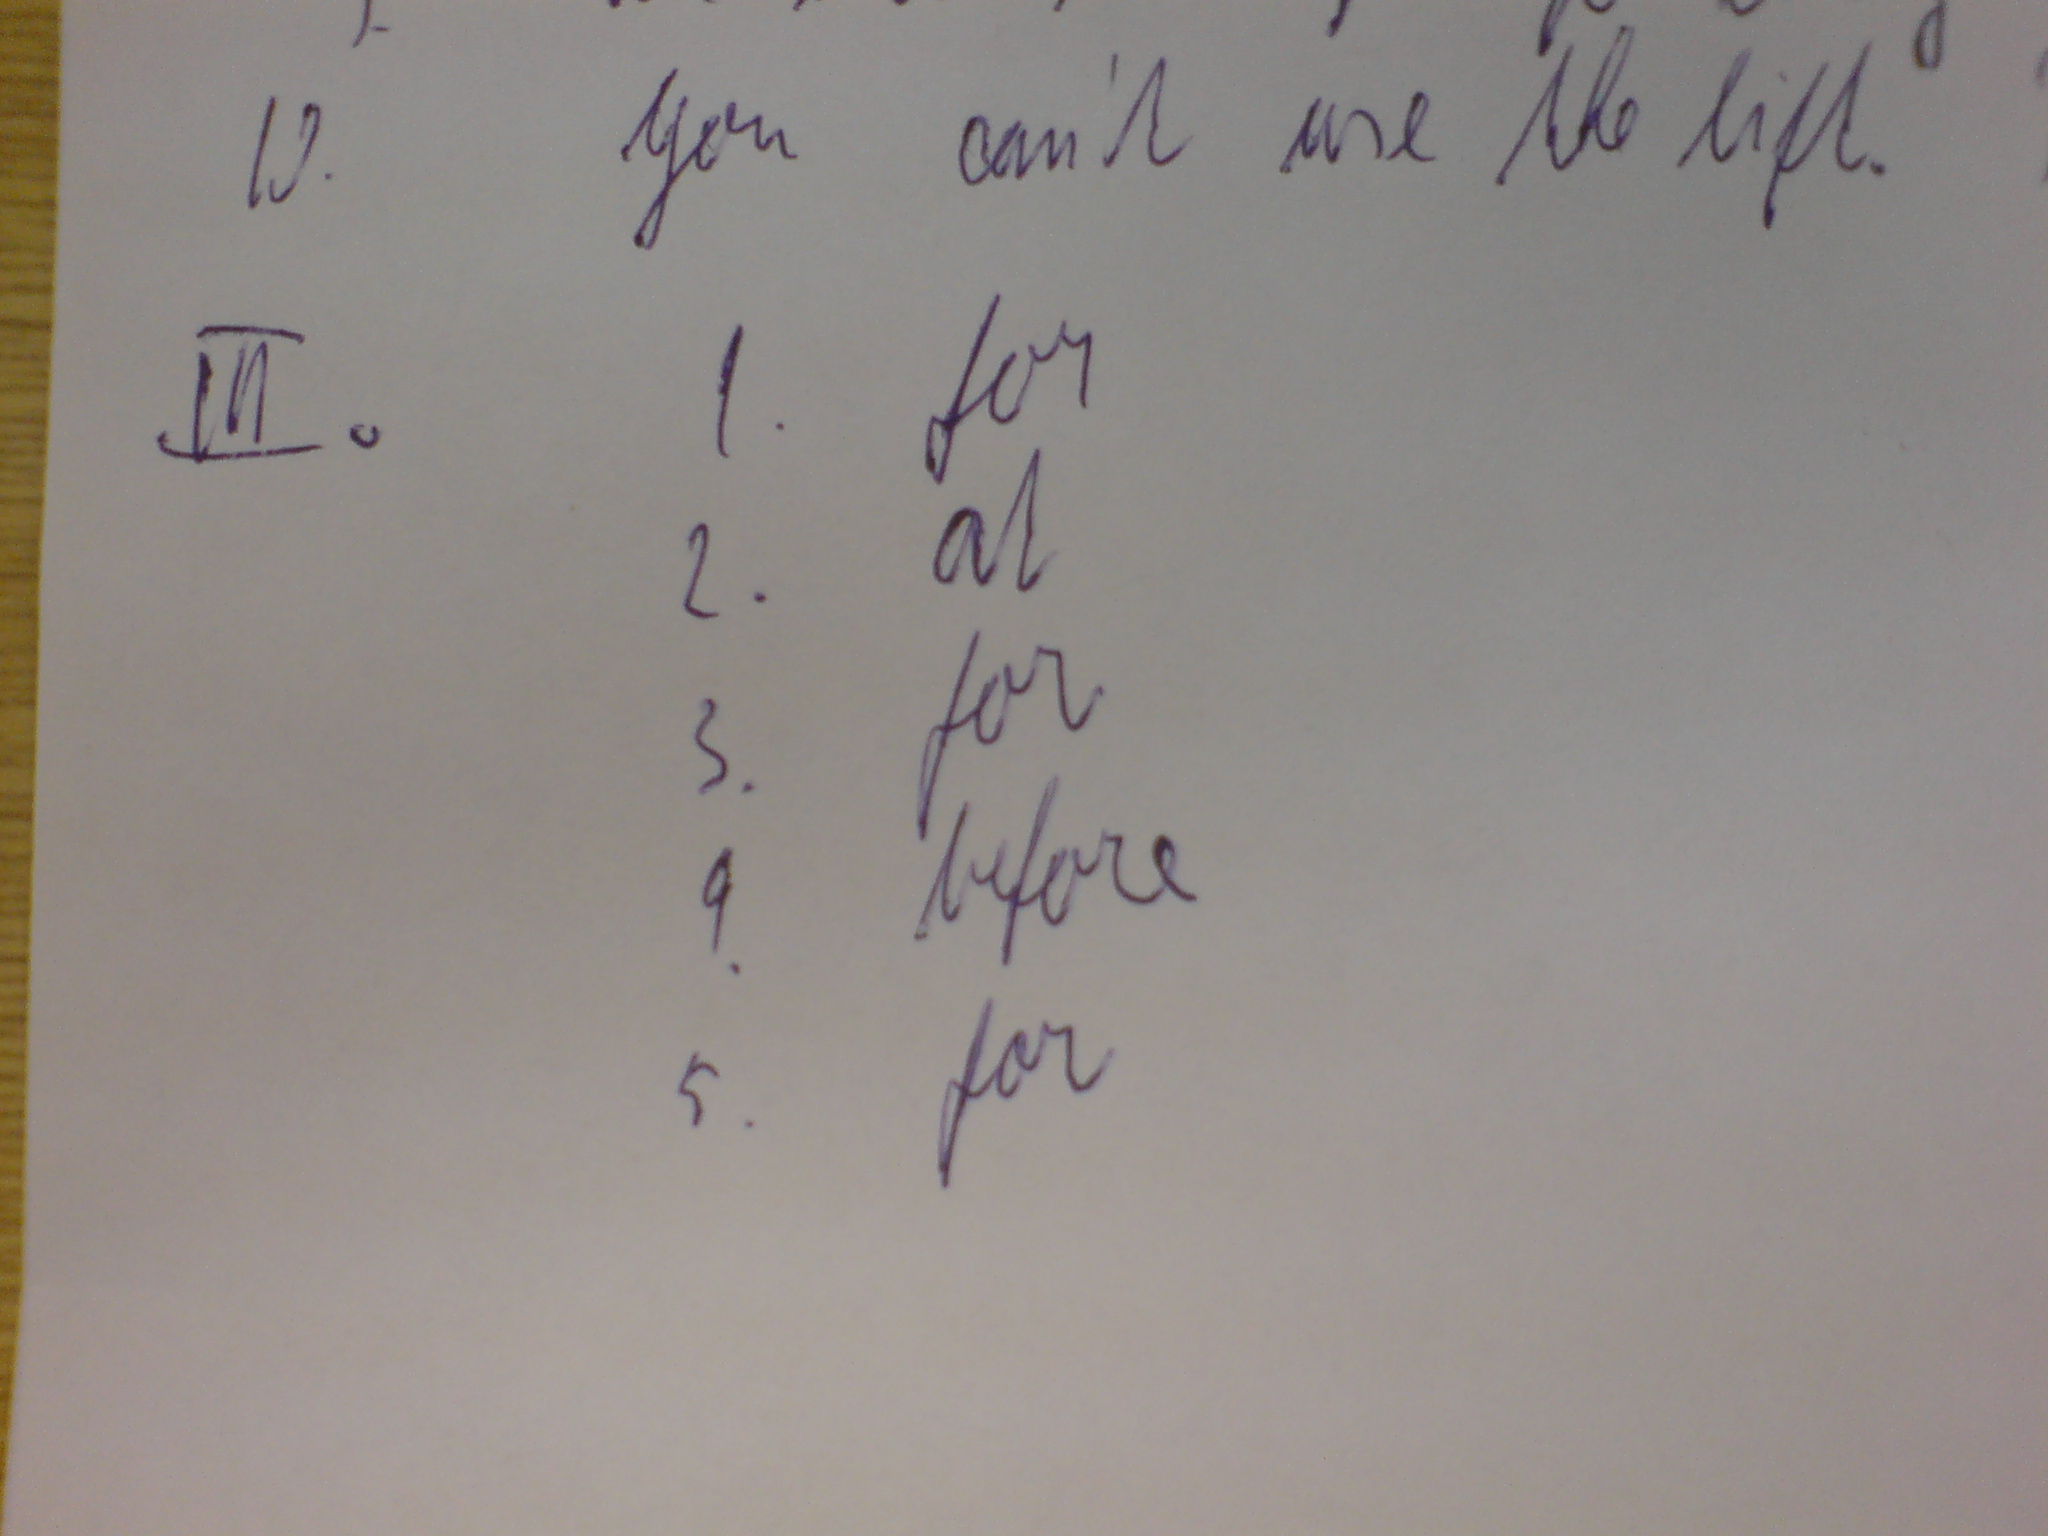 10. you can't use the lift.
III. 1. for
2. at
3. for
4. before
5. for